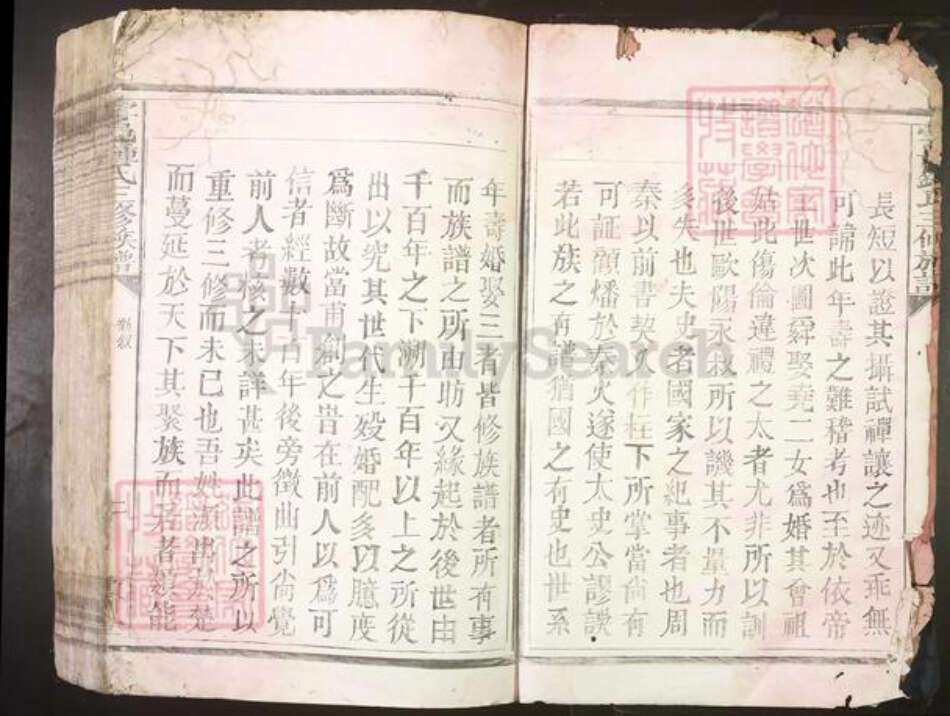 長短以證其攝試禪讓之迹又乖無
可諭此年壽之難稽考也至於依帝
王世次圖舜娶堯二女爲婚其會祖
姑此傷倫違禮之太者尤非所以訓
後世歐陽永叔所以譏其不量力而
多失也夫史者國家之紀事者也周
秦以前書契久作柱下所掌當尚有
可証顧燔於秦火遂使太史公謬誤
若此族之有譜猶國之有史也世系
年壽婚娶三者皆修族譜者所有事
而族譜之所由助又緣起於後世由
千百年之下溯千百年以上之所從
出以究其世代生殁婚配多以臆度
爲斷故當甫創之昔在前人以爲可
信者經數十百年後旁徵曲引尙覺
前人者核之未詳甚矣此譜之所以
重修三修而未已也吾姓派出於楚
而蔓延於天下其聚族而居者類能
氏三修族譜
新叙
FamilySearch